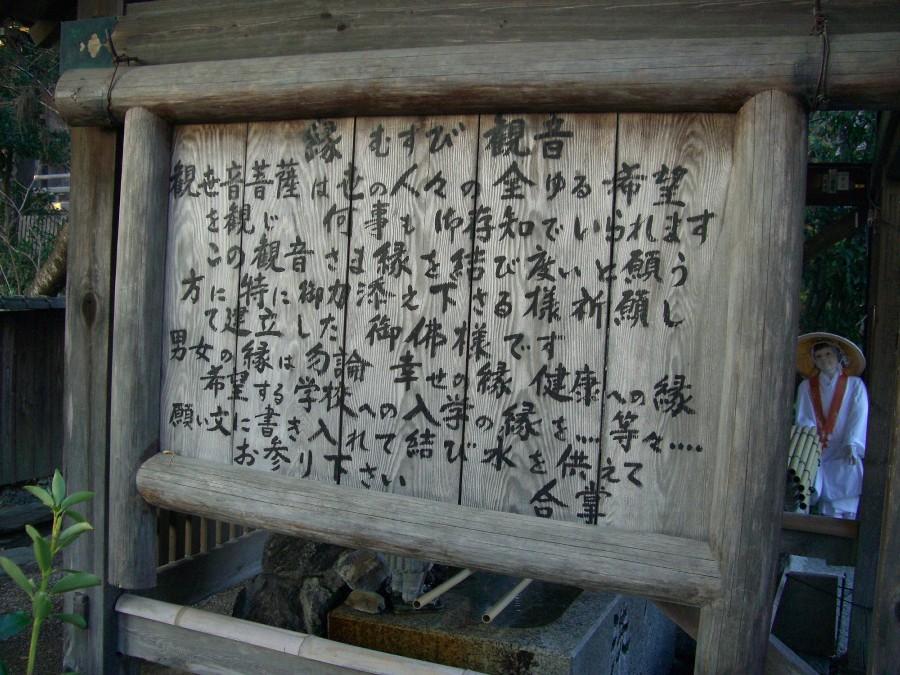 縁むすび観音
観世音菩薩は世の人々の全ゆる希望
を観じ何事も御存知でいられます
この観音さま縁を結び度いと願う
方に特に御力添え下さる様祈願し
て建立した御佛様です
男女の縁は勿論幸せの縁健康への縁
希望する学校への入学の縁を……等々……
願い文に書き入れて結び水を供えて
お参り下さい 合掌